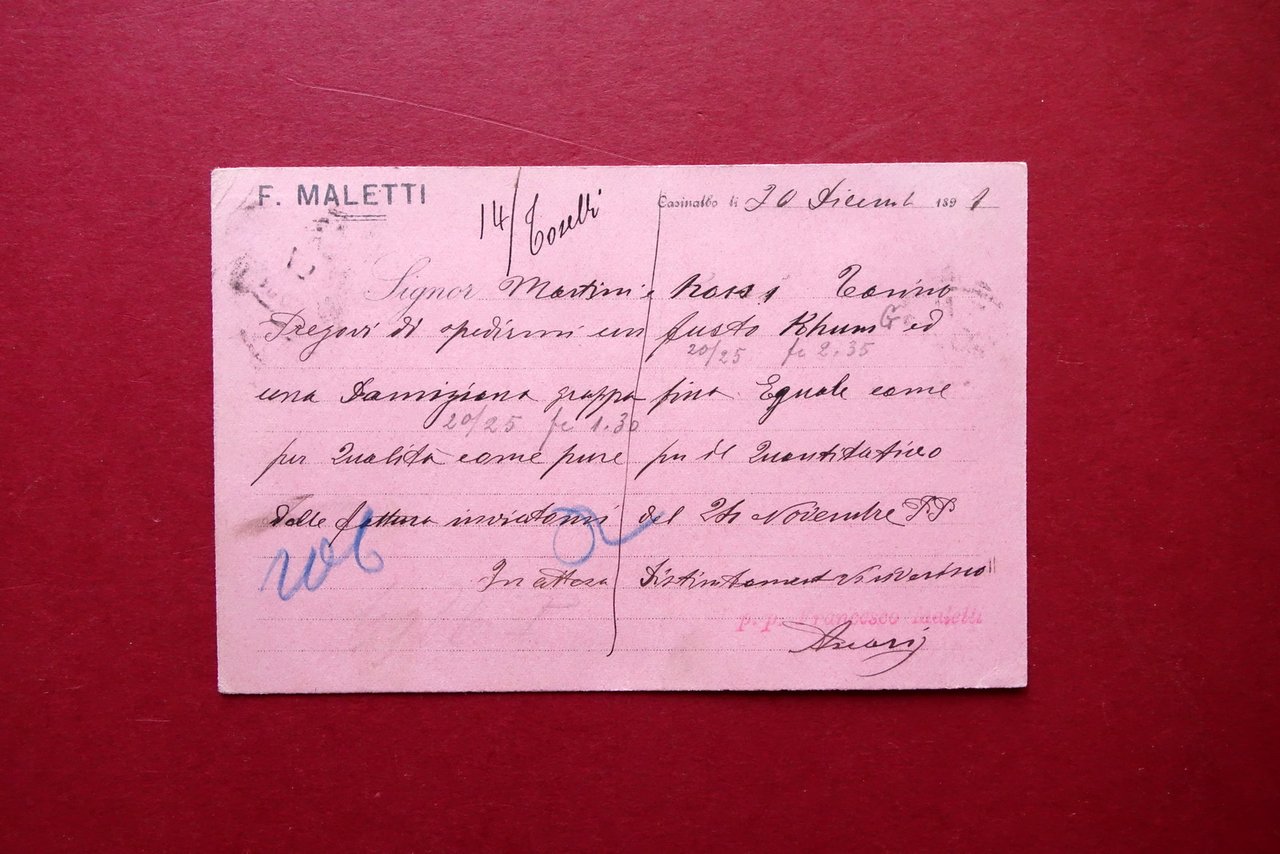 F. MALETTI
14/ Toselli
Casinalbo li 20 Dicemb 1891
Signor Martini e Rossi Torino
Pregovi di spedirmi un fusto Rhum ed
20/25 fr 2.35
una Damigiana grappa fina Eguale come
20/25 fr 1.30
per Qualità come pure per il Quantitativo
della fattura inviatomi del 24 Novembre P.P.
In attesa Distintamente
p.p. Francesco Maletti